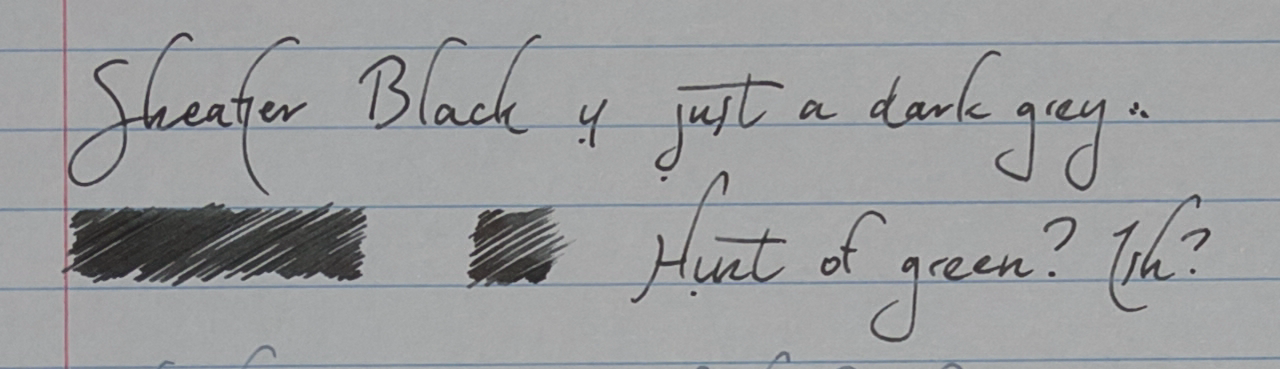 Sheaffer Black is just a dark grey..
Hint of green? Ish?